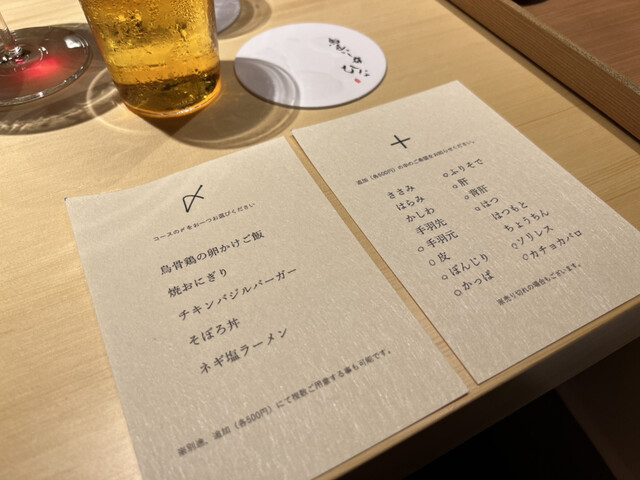 〆
コースの〆をお一つお選びください
烏骨鶏の卵かけご飯
焼おにぎり
チキンバジルバーガー
そぼろ丼
ネギ塩ラーメン
個別途、追加（各500円）にて複数ご用意する事も可能です。
＋
追加（各500円）の串のご希望をお知らせください。
ささみ
はらみ
かしわ
手羽先
○手羽元
○皮
○ぼんじり
○かっぱ
○ふりそで
○肝
○背肝
○はつ
はつもと
ちょうちん
○ソリレス
○カチョカバロ
※売り切れの場合もございます。